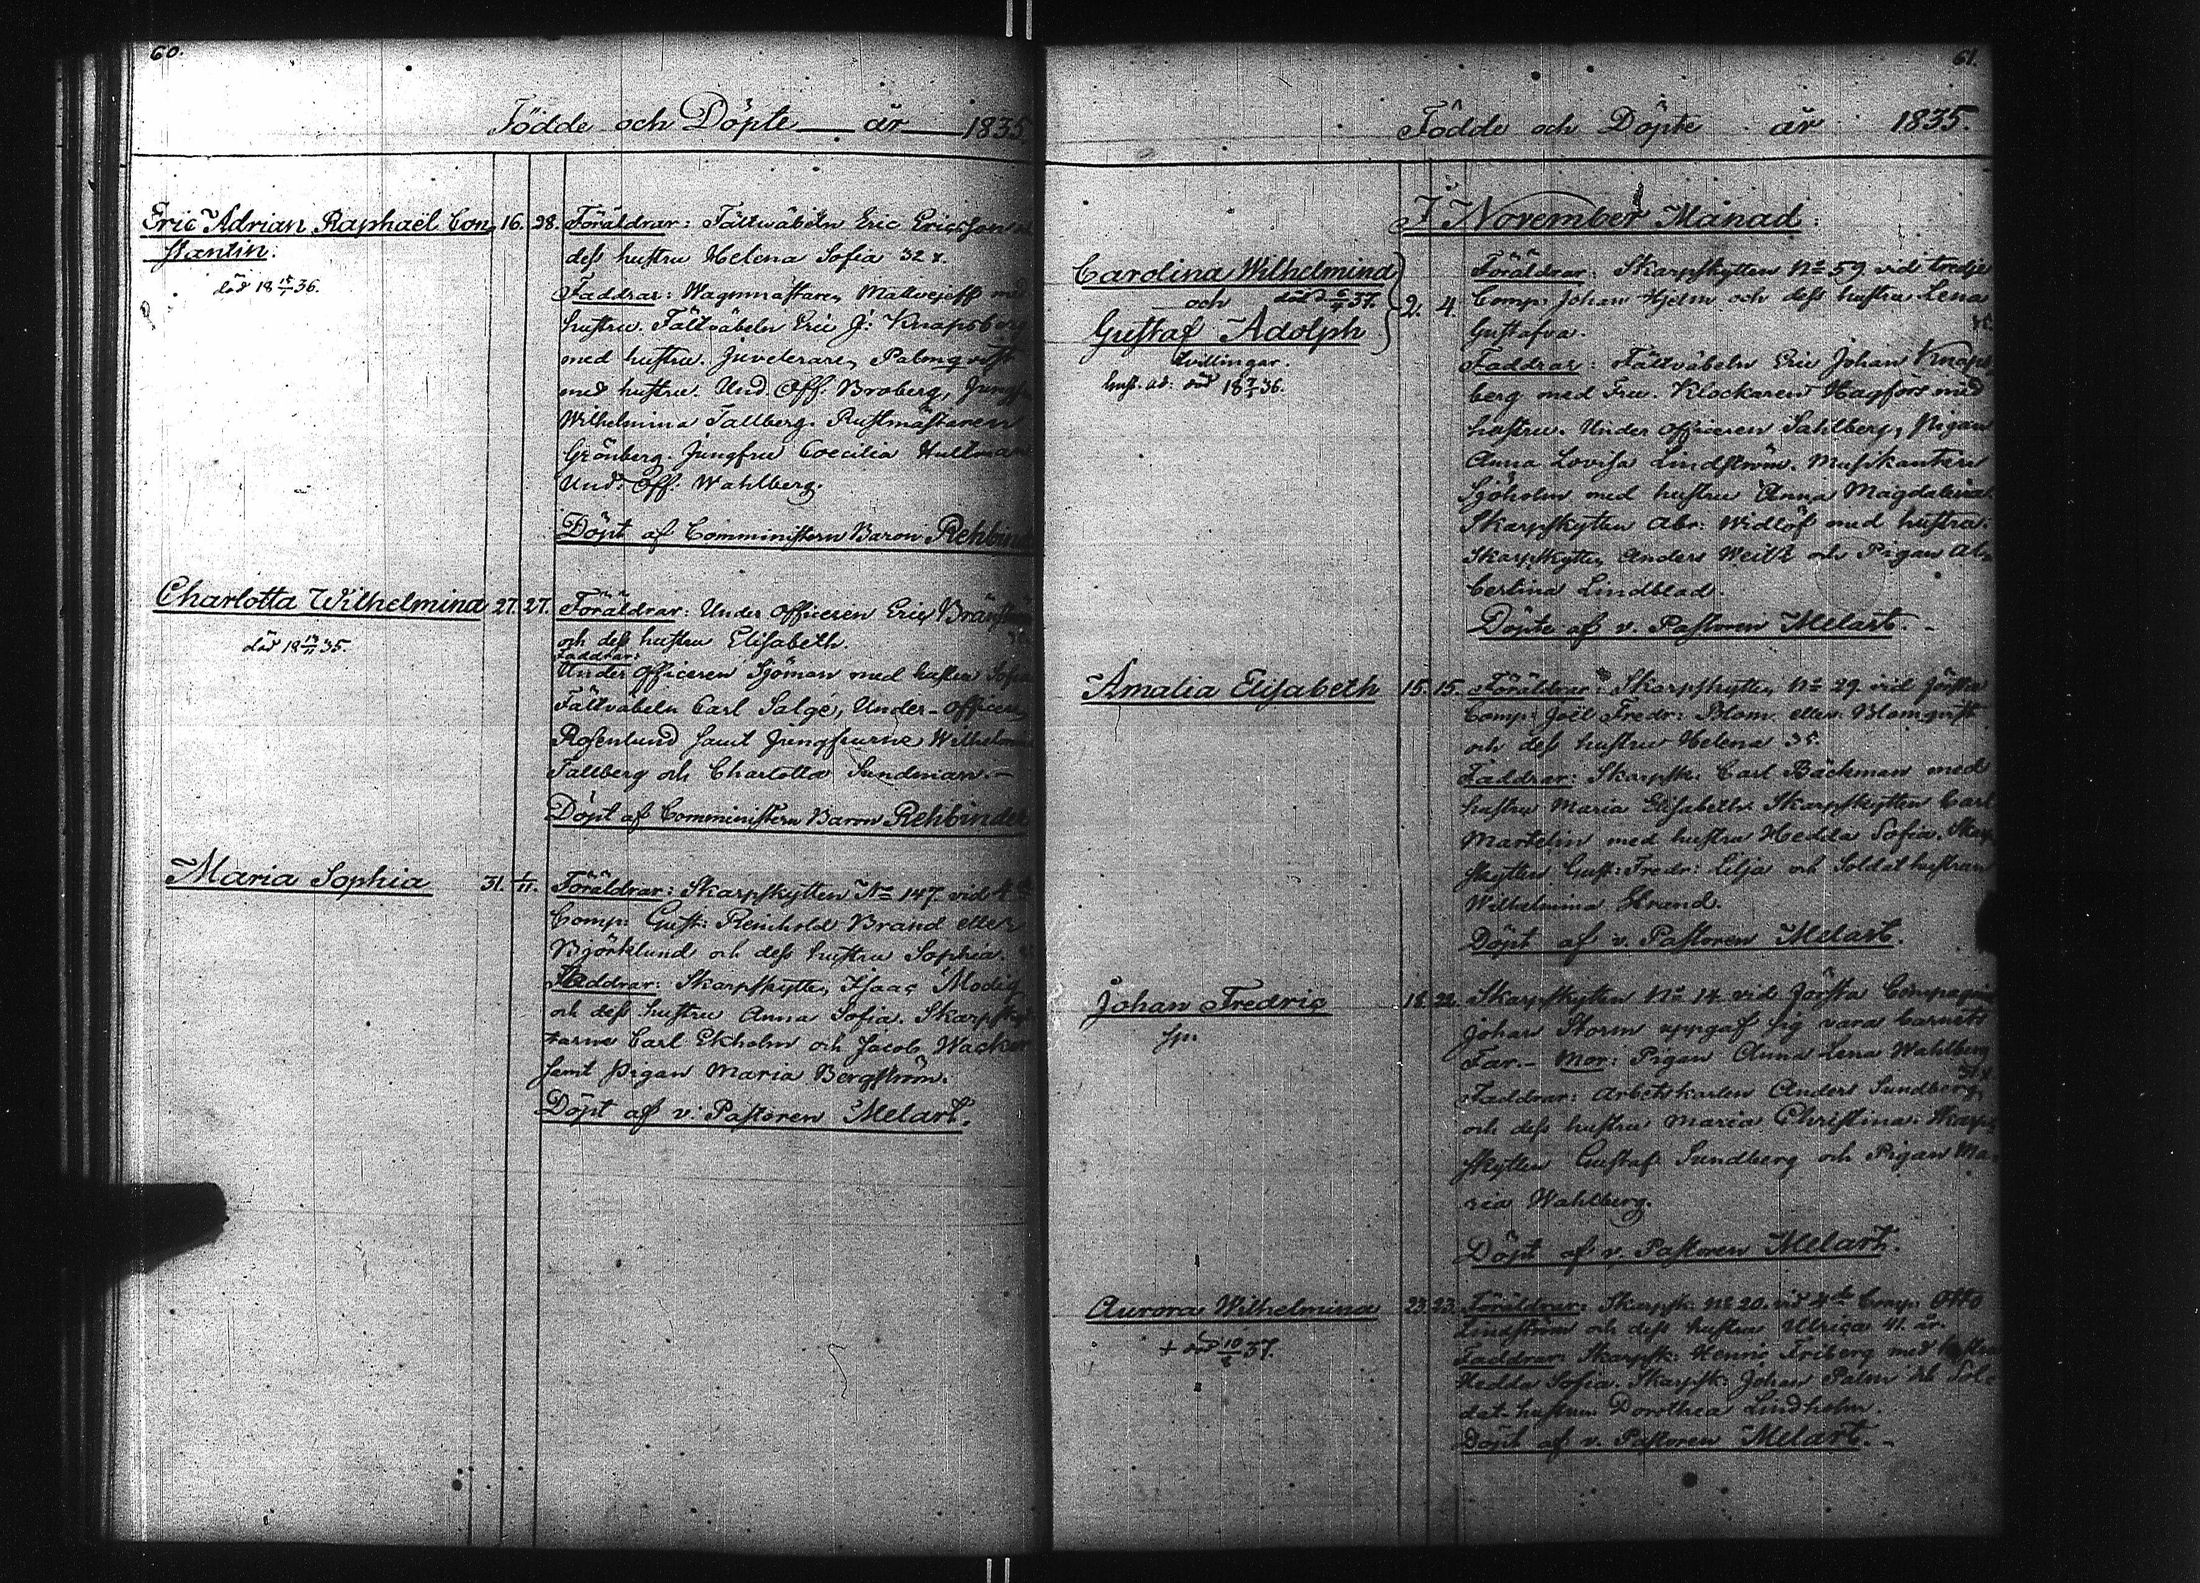 60.
Födde och Döpte år 1835
Eric Adrian Raphaël Con- 16. 28. Föräldrar: Fältwäbeln Eric Ericsson
stantin. dess hustru Helena Sofia 32
död 18 15/1 36. Faddrar: Wagenmästaren Mattvejeff med
hustru. Fältväbeln Eric J: Knapsberg
med hustru. Juveleraren Palmqvist
med hustru. Und. Off. Broberg, Jungfr
Wilhelmina Tallberg. Rustmästaren
Grönberg. Jungfru Coecilia Hultman
Und. Off. Wahlberg.
Döpt af Comministern Baron Rehbinde
Charlotta Wilhelmina 27. 27. Föräldrar: Under officeren Eric
och dess hustru Elisabeth.
död 18 /11 35. Faddrar:
Under officeren Sjöman med hustru Sofia
Fältväbeln Carl Salgé, Under-officer
Rosenlund samt Jungfrurne Wilhelmina
Tallberg och Charlotta Sundman.
Döpt af Comministern Baron Rehbinder
Maria Sophia 31. 1/11. Föräldrar: Skarpskytten No 147 vid 4
Comp: Gust: Reinhold Brand eller
Björklund och dess hustru Sophia.
Faddrar: Skarpskytten Isaac Modig
och dess hustru Anna Sofia. Skarpskyt
tarne Carl Ekholm och Jacob Wacker
samt Pigan Maria Bergström.
Döpt af v: Pastoren Melart.
61.
Födde och Döpte år 1835.
I November Månad
Carolina Wilhelmina Föräldrar: Skarpskytten No 59 vid tredje
och död 6/4 37. 2. 4. Comp: Johan Hjelm och dess hustru Lena
Gustaf Adolph Gustafva.
tvillingar. Faddrar: Fältväbeln Eric Johan Knaps
Gust. ad: död 18 7/1 36. berg med Fru. Klockaren Hagfors med
hustru. Under officeren Sahlberg, Pigan
Anna Lovisa Lindström. Musikanten
Sjöholm med hustru Anna Magdalena.
Skarpskytten Abr: Widlöf med hustru.
Skarpskytten Anders Weilt och Pigan Al-
bertina Lindblad.
Döpte af v. Pastoren Melart.
Amalia Elisabeth 15. 15. Föräldrar: Skarpskytten No 29 vid första
Comp: Joël Fredr: Blom eller Blomqvist
och dess hustru Helena 35.
Faddrar: Skarpsk: Carl Bäckman med
hustru Maria Elisabeth. Skarpskytten Carl
Martelin med hustru Hedda Sofia. Skarp
skytten Gust: Fredr: Lilja och Soldat hustrun
Wilhelmina Strand.
Döpt af v. Pastoren Melart.
Johan Fredric 18. 22. Skarpskytten No 14 vid första Compagni
sp. Johan Storm uppgaf sig vara barnets
Far. Mor: Pigan Anna Lena Wahlberg
Faddrar: Arbetskarlen Anders Sundberg
och dess hustru Maria Christina. Skarp
skytten Gustaf Sundberg och Pigan Ma-
ria Wahlberg.
Döpt af v. Pastoren Melart.
Aurora Wilhelmina 23. 23. Föräldrar: Skarpsk. No 20. vid Comp: Otto
Lindström och dess hustru Ulrica 41. år
+ död 10/6 37. Faddrar: Skarpsk: Henric Friberg med hustru
Hedda Sofia. Skarpsk: Johan Palm och Sol-
dat-hustrun Dorothea Lindholm.
Döpt af v. Pastoren Melart.